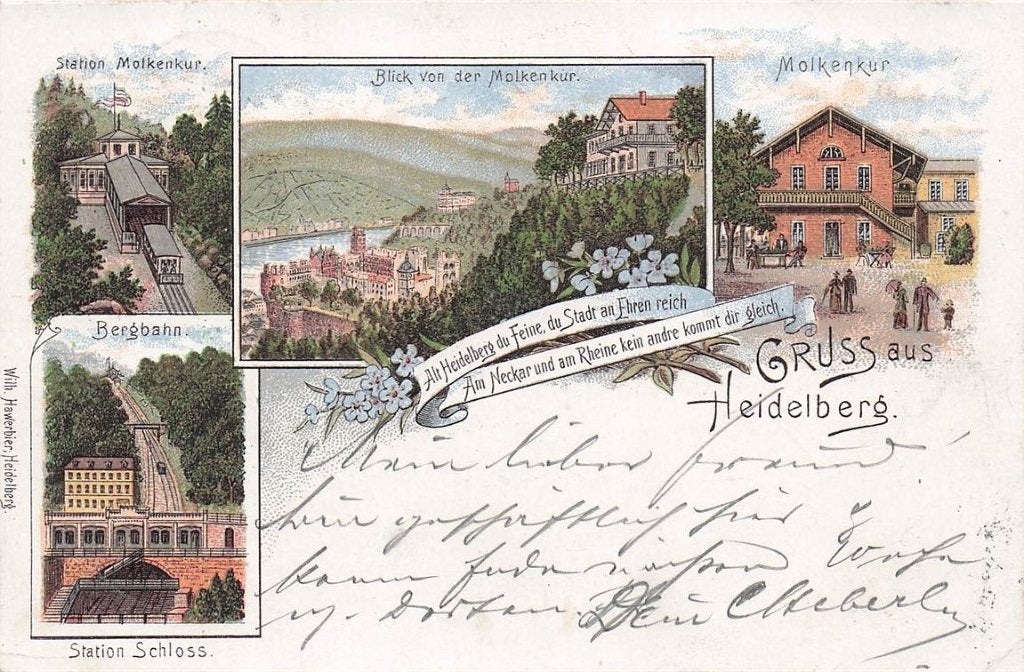 Station Molkenkur.
Blick von der Molkenkur.
Molkenkur
Bergbahn.
Alt Heidelberg du Feine, du Stadt an Ehren reich
Am Neckar und am Rheine kein andre kommt dir gleich.
Gruss aus
Heidelberg.
Wilh. Hawerbier, Heidelberg.
Station Schloss.
Mein lieber Freund
bin geschäftlich hier
komm Ende nächster Woche
n. dorten. Dein